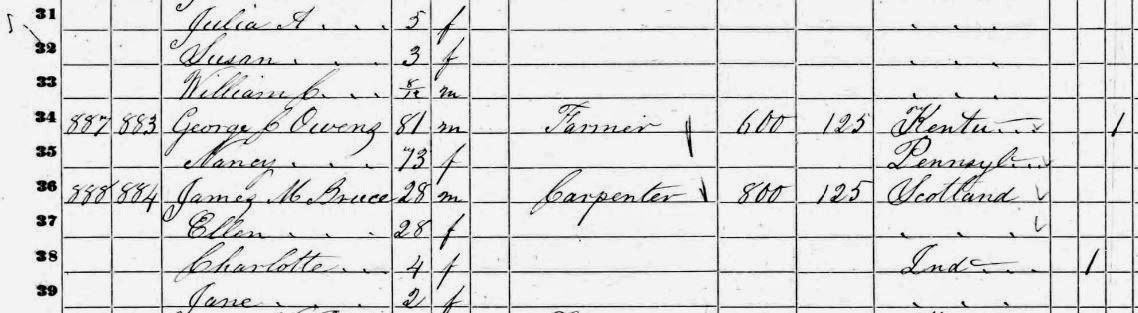 31 Julia A . . . 5 f . . .
32 Susan . . . 3 f . . .
33 William C. . . 8/12 m . . .
34 887 883 George C Owens 81 m Farmer 600 125 Kentu... 1
35 Nancy . . . 73 f Pennsyl...
36 888 884 James M Bruce 28 m Carpenter 800 125 Scotland
37 Ellen . . . 28 f . . .
38 Charlotte . . 4 f Ind... 1
39 Jane . . . 2 f . . .